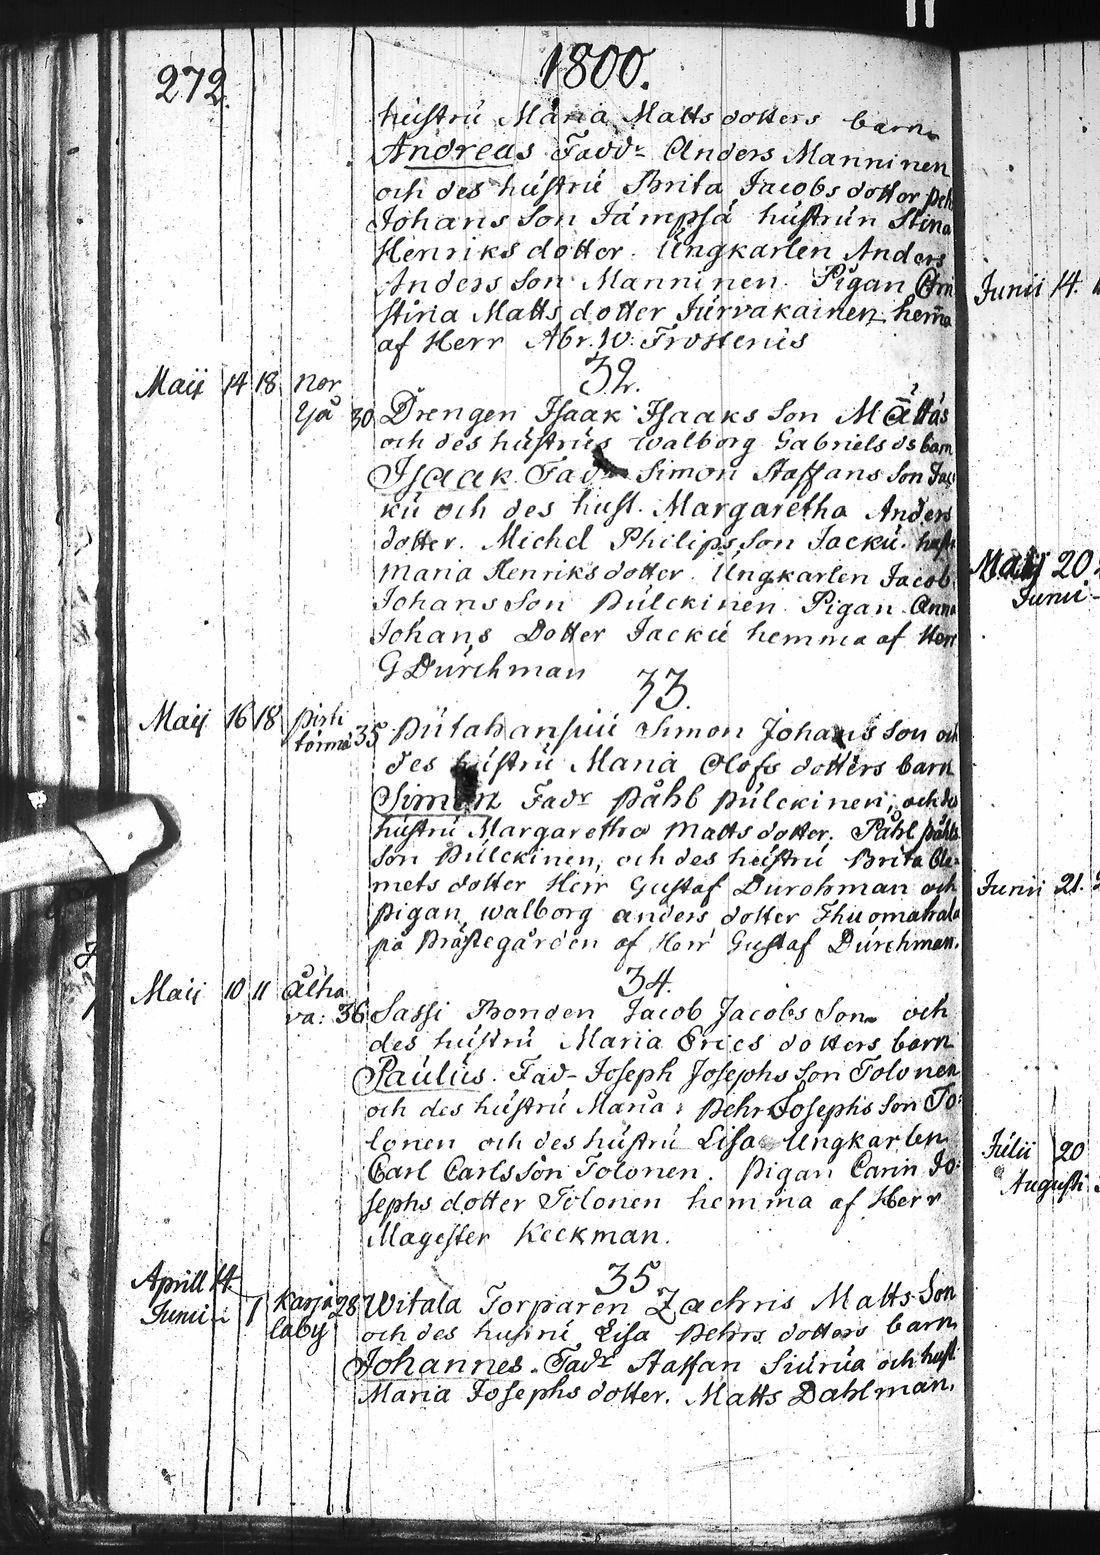 272.
1800.
hustru Maria Matts dotters barn
Andreas Fadd Anders Manninen
och des hustru Brita Jacobs dotter Peh
Johans Son Jämpsä hustrun Stina
Henriks dotter. Ungkarlen Anders
Anders Son Manninen. Pigan Chri
stina Matts dotter Jurvakainen hema
af Herr Abr. W: Frosterus
32.
Maij 14 18 nor
sjå 30 Drengen Isaak Isaaks Son Måttås
och des hustrus Walborg Gabriels ds barn
Isaak Fadr Simon Staffans Son Jac
ku och des hust. Margaretha Anders
dotter. Michel Philips Son Jacku. hust
Maria Henriks dotter. Ungkarlen Jacob
Johans Son Pulckinen Pigan Anna
Johans Dotter Jacku hemma af Herr
G Durchman
33.
Maij 16 18 Pisti
törmä 35 Simon Johans Son och
des hustru Maria Olofs dotters barn
Simon Fadr Påhl Pulckinen, och des
hustru Margaretha Matts dotter, Påhl Påhls
Son Pulckinen, och des hustru Brita Cle-
mets dotter Herr Gustaf Durchman och
Pigan Walborg anders dotter
på Prästegården af Herr Gustaf Durchman.
34.
Maij 10 11 Alha
va: 36 Sassi Bonden Jacob Jacobs Son och
des hustru Maria Erics dotters barn
Paulus. Fad- Joseph Josephs Son Tolonen
och des hustru Maria: Pehr Josephs Son To:
lonen och des hustru Lisa Ungkarlen
Carl Carls Son Tolonen. Pigan Carin Jo:
sephs dotter Tolonen hemma af Herr
Magester Keckman.
35
Aprill 14
Junii 1 Karja
laby 28 Witala Torparen Zachris Matts Son
och des hustru Lisa Pehrs dotters barn
Johannes. Fadr Staffan Siurua och hust
Maria Josephs dotter. Matts Dahlman.
Junii 14.
Maij 20
Junii
Junii 21.
Julii 20
Augusti